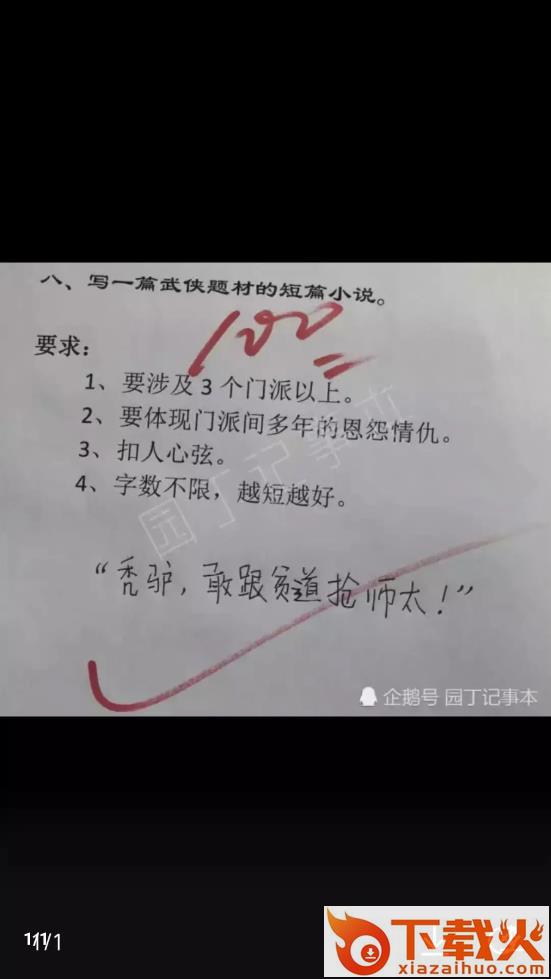 八、写一篇武侠题材的短篇小说。
100
要求：
1、要涉及 3 个门派以上。
2、要体现门派间多年的恩怨情仇。
3、扣人心弦。
4、字数不限，越短越好。
园丁记事本
“秃驴，敢跟贫道抢师太！”
企鹅号 园丁记事本
1/1
下载火
xiazaihuo.com